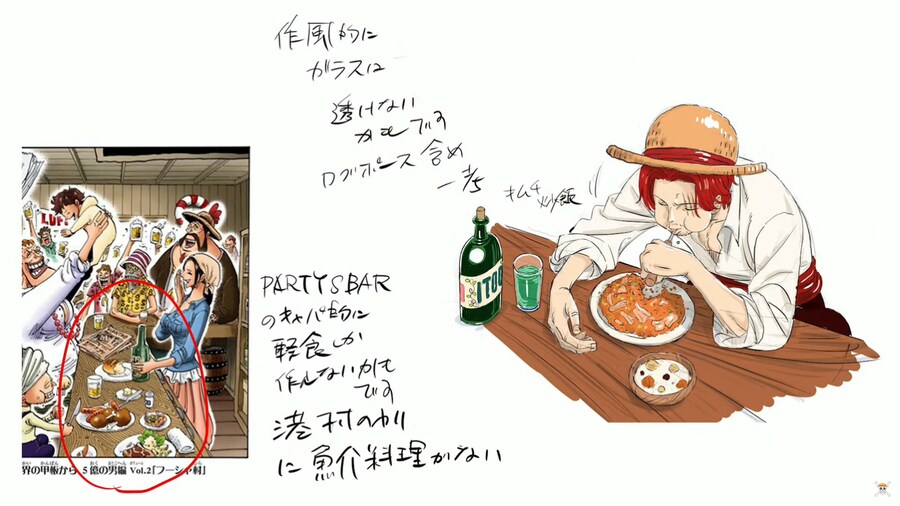 作風的に
ガラスは
透けない
かもです
ログポース含め
一考
キムチ炒飯
PARTYSBAR
のキャパ的に
軽食しか
作れないかも
です
港村のわり
に魚介料理がない
LUF
ITOO
界の甲板から 5億の男編 Vol.2「フーシャ村」